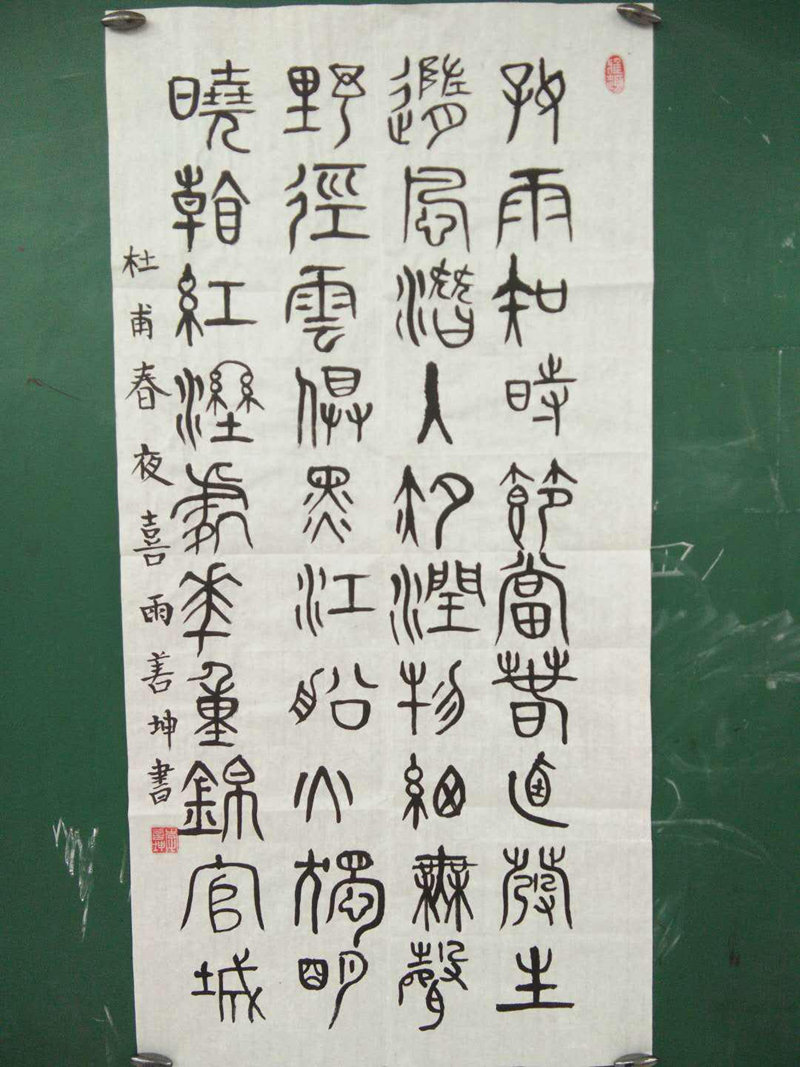 好雨知時節當春迺發生
隨風潛入夜潤物細無聲
野徑雲俱黑江船火獨明
曉看紅濕處華重錦官城
杜甫春夜喜雨善坤書